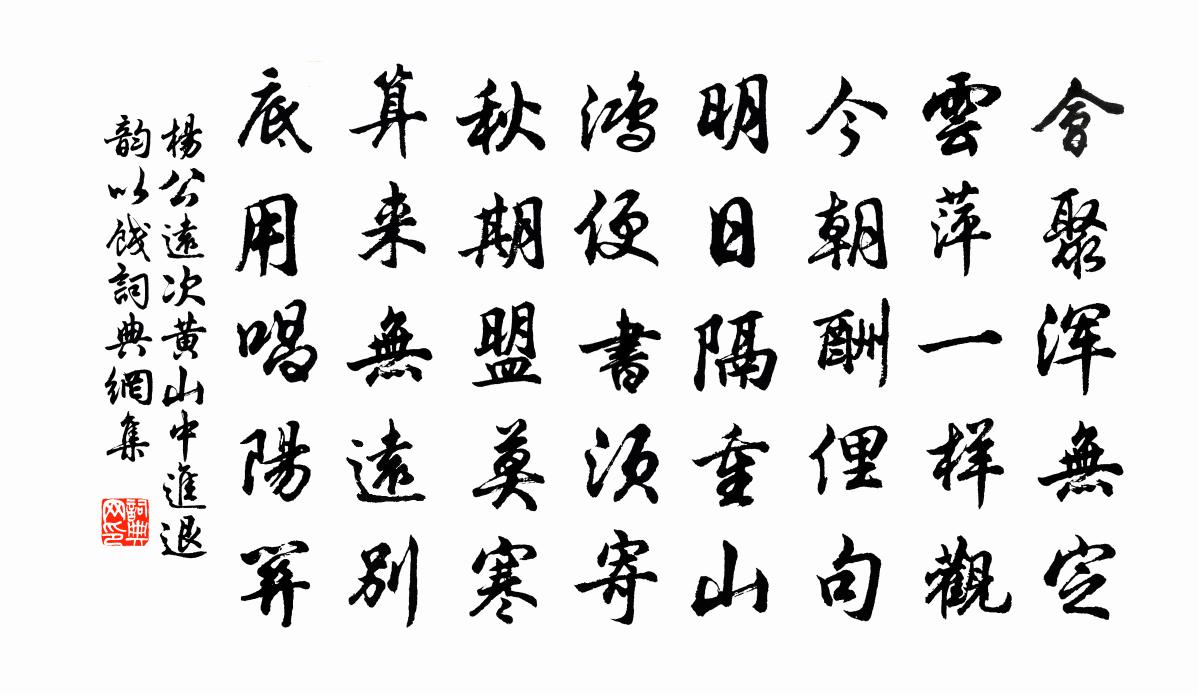 會聚渾無定
雲萍一样觀
今朝酬俚句
明日隔重山
鴻便書須寄
秋期盟莫寒
算来無遠別
底用唱陽關
楊公遠次黄山中進退
韵以餞詞典網集
詞典
网印